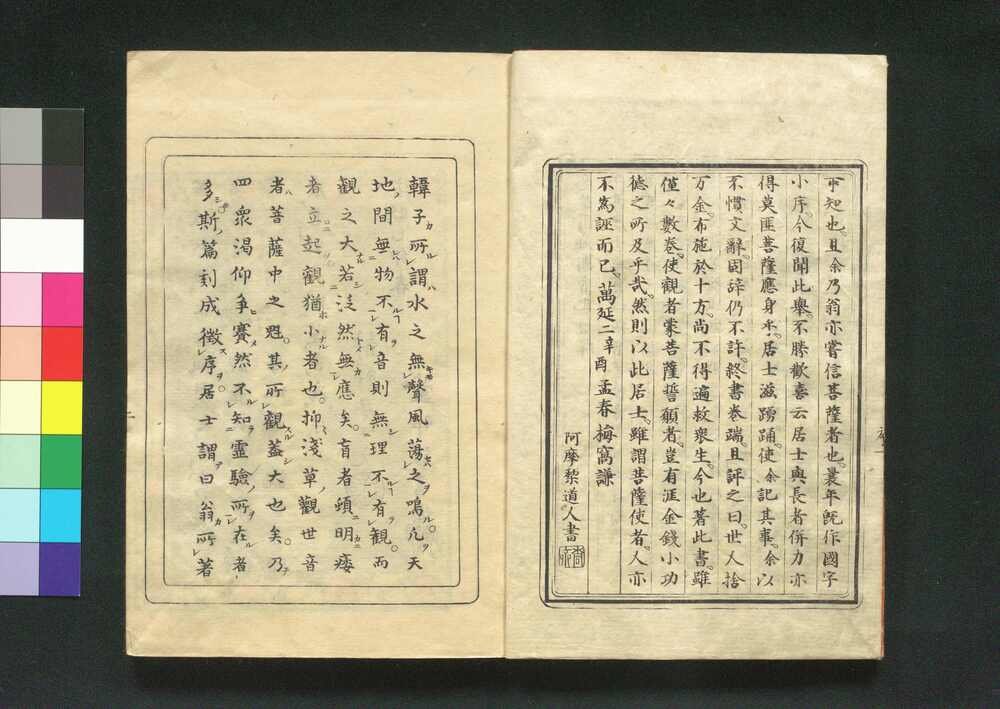 可知也。且余乃翁亦嘗信菩薩者也。曩年既作國字
小序。今復聞此舉。不勝歡喜云居士與長者併力亦
得莫匪菩薩應身乎。居士滋踴踊。使余記其事。余以
不慣文辭。固辞仍不許。終書卷端。且訴之曰。世人捨
万金。布施於十方。尚不得遍救衆生。今也著此書。雖
僅々數卷。使觀者蒙菩薩誓願者。豈有涯金錢小功
德之所及乎哉。然則以此居士。雖謂菩薩使者。人亦
不為誣而已。萬延二辛酉孟春梅窩謙
阿摩黎道人書
韓子所謂水之無聲風蕩之鳴。凡天
地間無物不有音則無理不有觀。而
觀之大若泛然無應矣。盲者頓明痿
者立起觀猶小者也。抑淺草觀世音
者菩薩中之魁。其所觀蓋大也矣。乃
四衆渇仰争賽然不知靈驗所在者
多。斯篇刻成徴序。居士謂曰翁所著